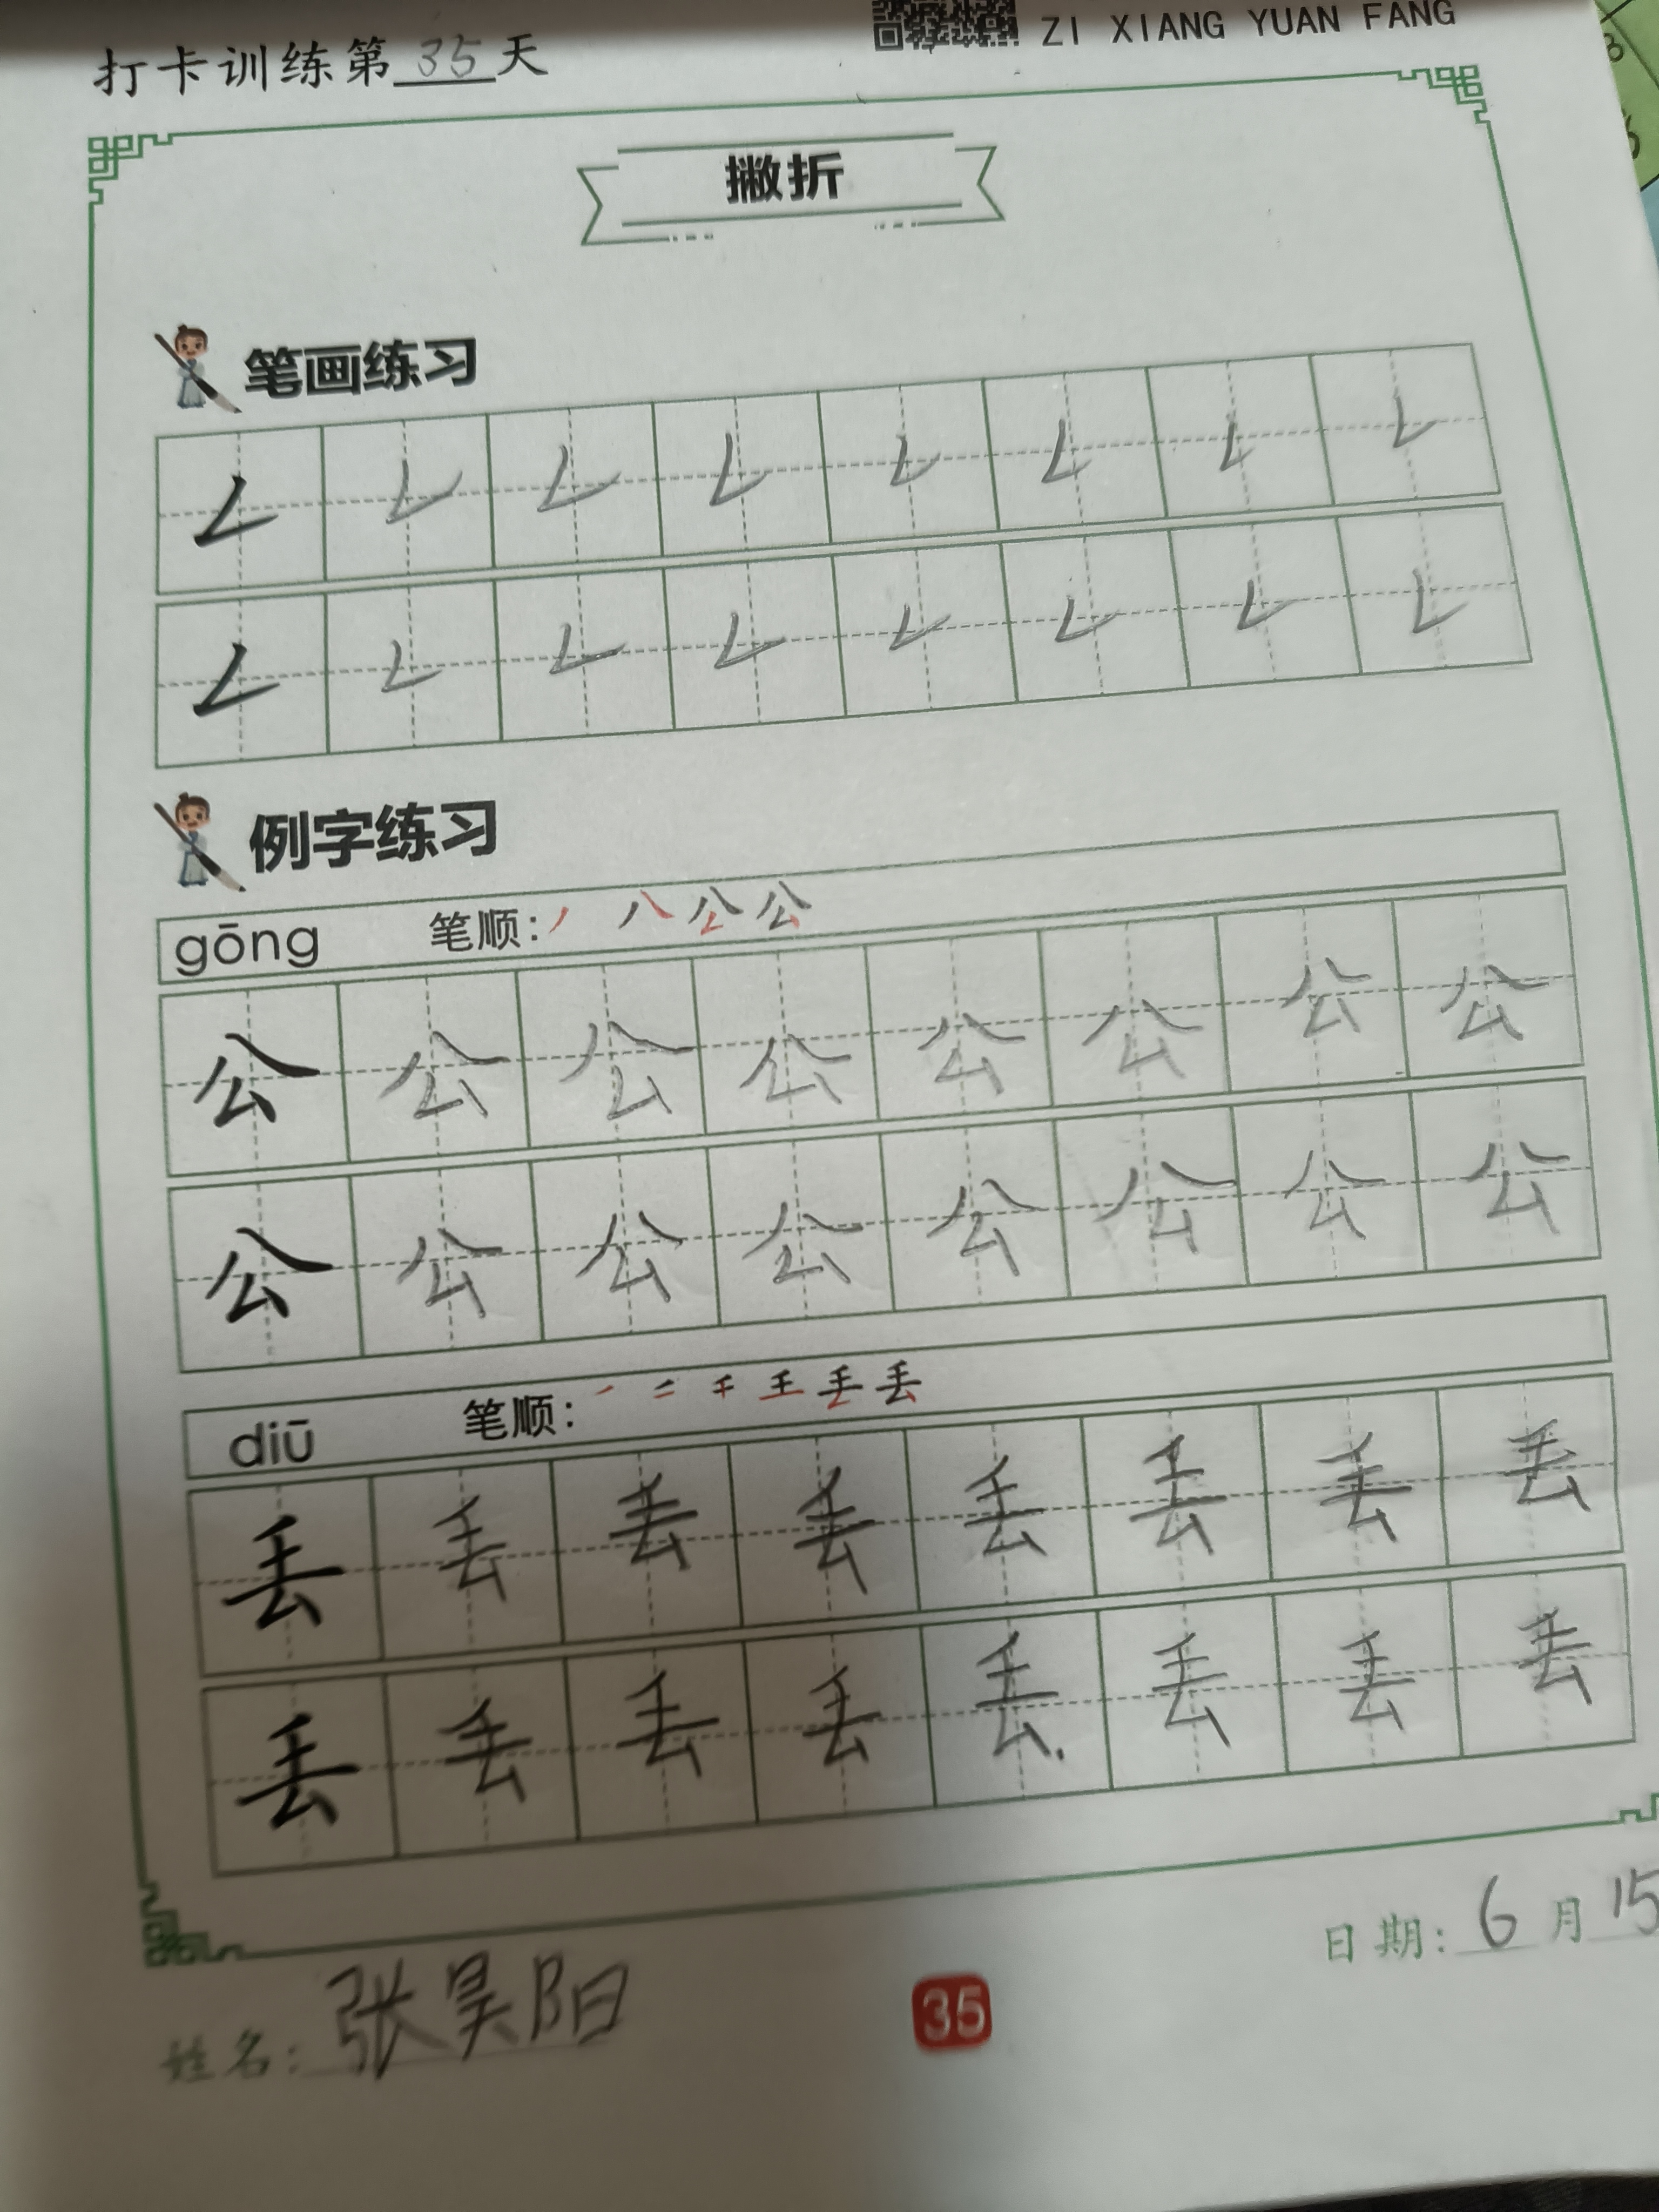 打卡训练第35天
ZI XIANG YUAN FANG
撇折
笔画练习
𠃋 𠃋 𠃋 𠃋 𠃋 𠃋 𠃋 𠃋
𠃋 𠃋 𠃋 𠃋 𠃋 𠃋 𠃋 𠃋
例字练习
gōng 笔顺: 丿 八 公 公
公 公 公 公 公 公 公 公
公 公 公 公 公 公 公 公
diū 笔顺: 丢 丢
丢 丢 丢 丢 丢 丢 丢 丢
丢 丢 丢 丢 丢 丢 丢 丢
日期: 6月15
姓名: 张昊阳
35